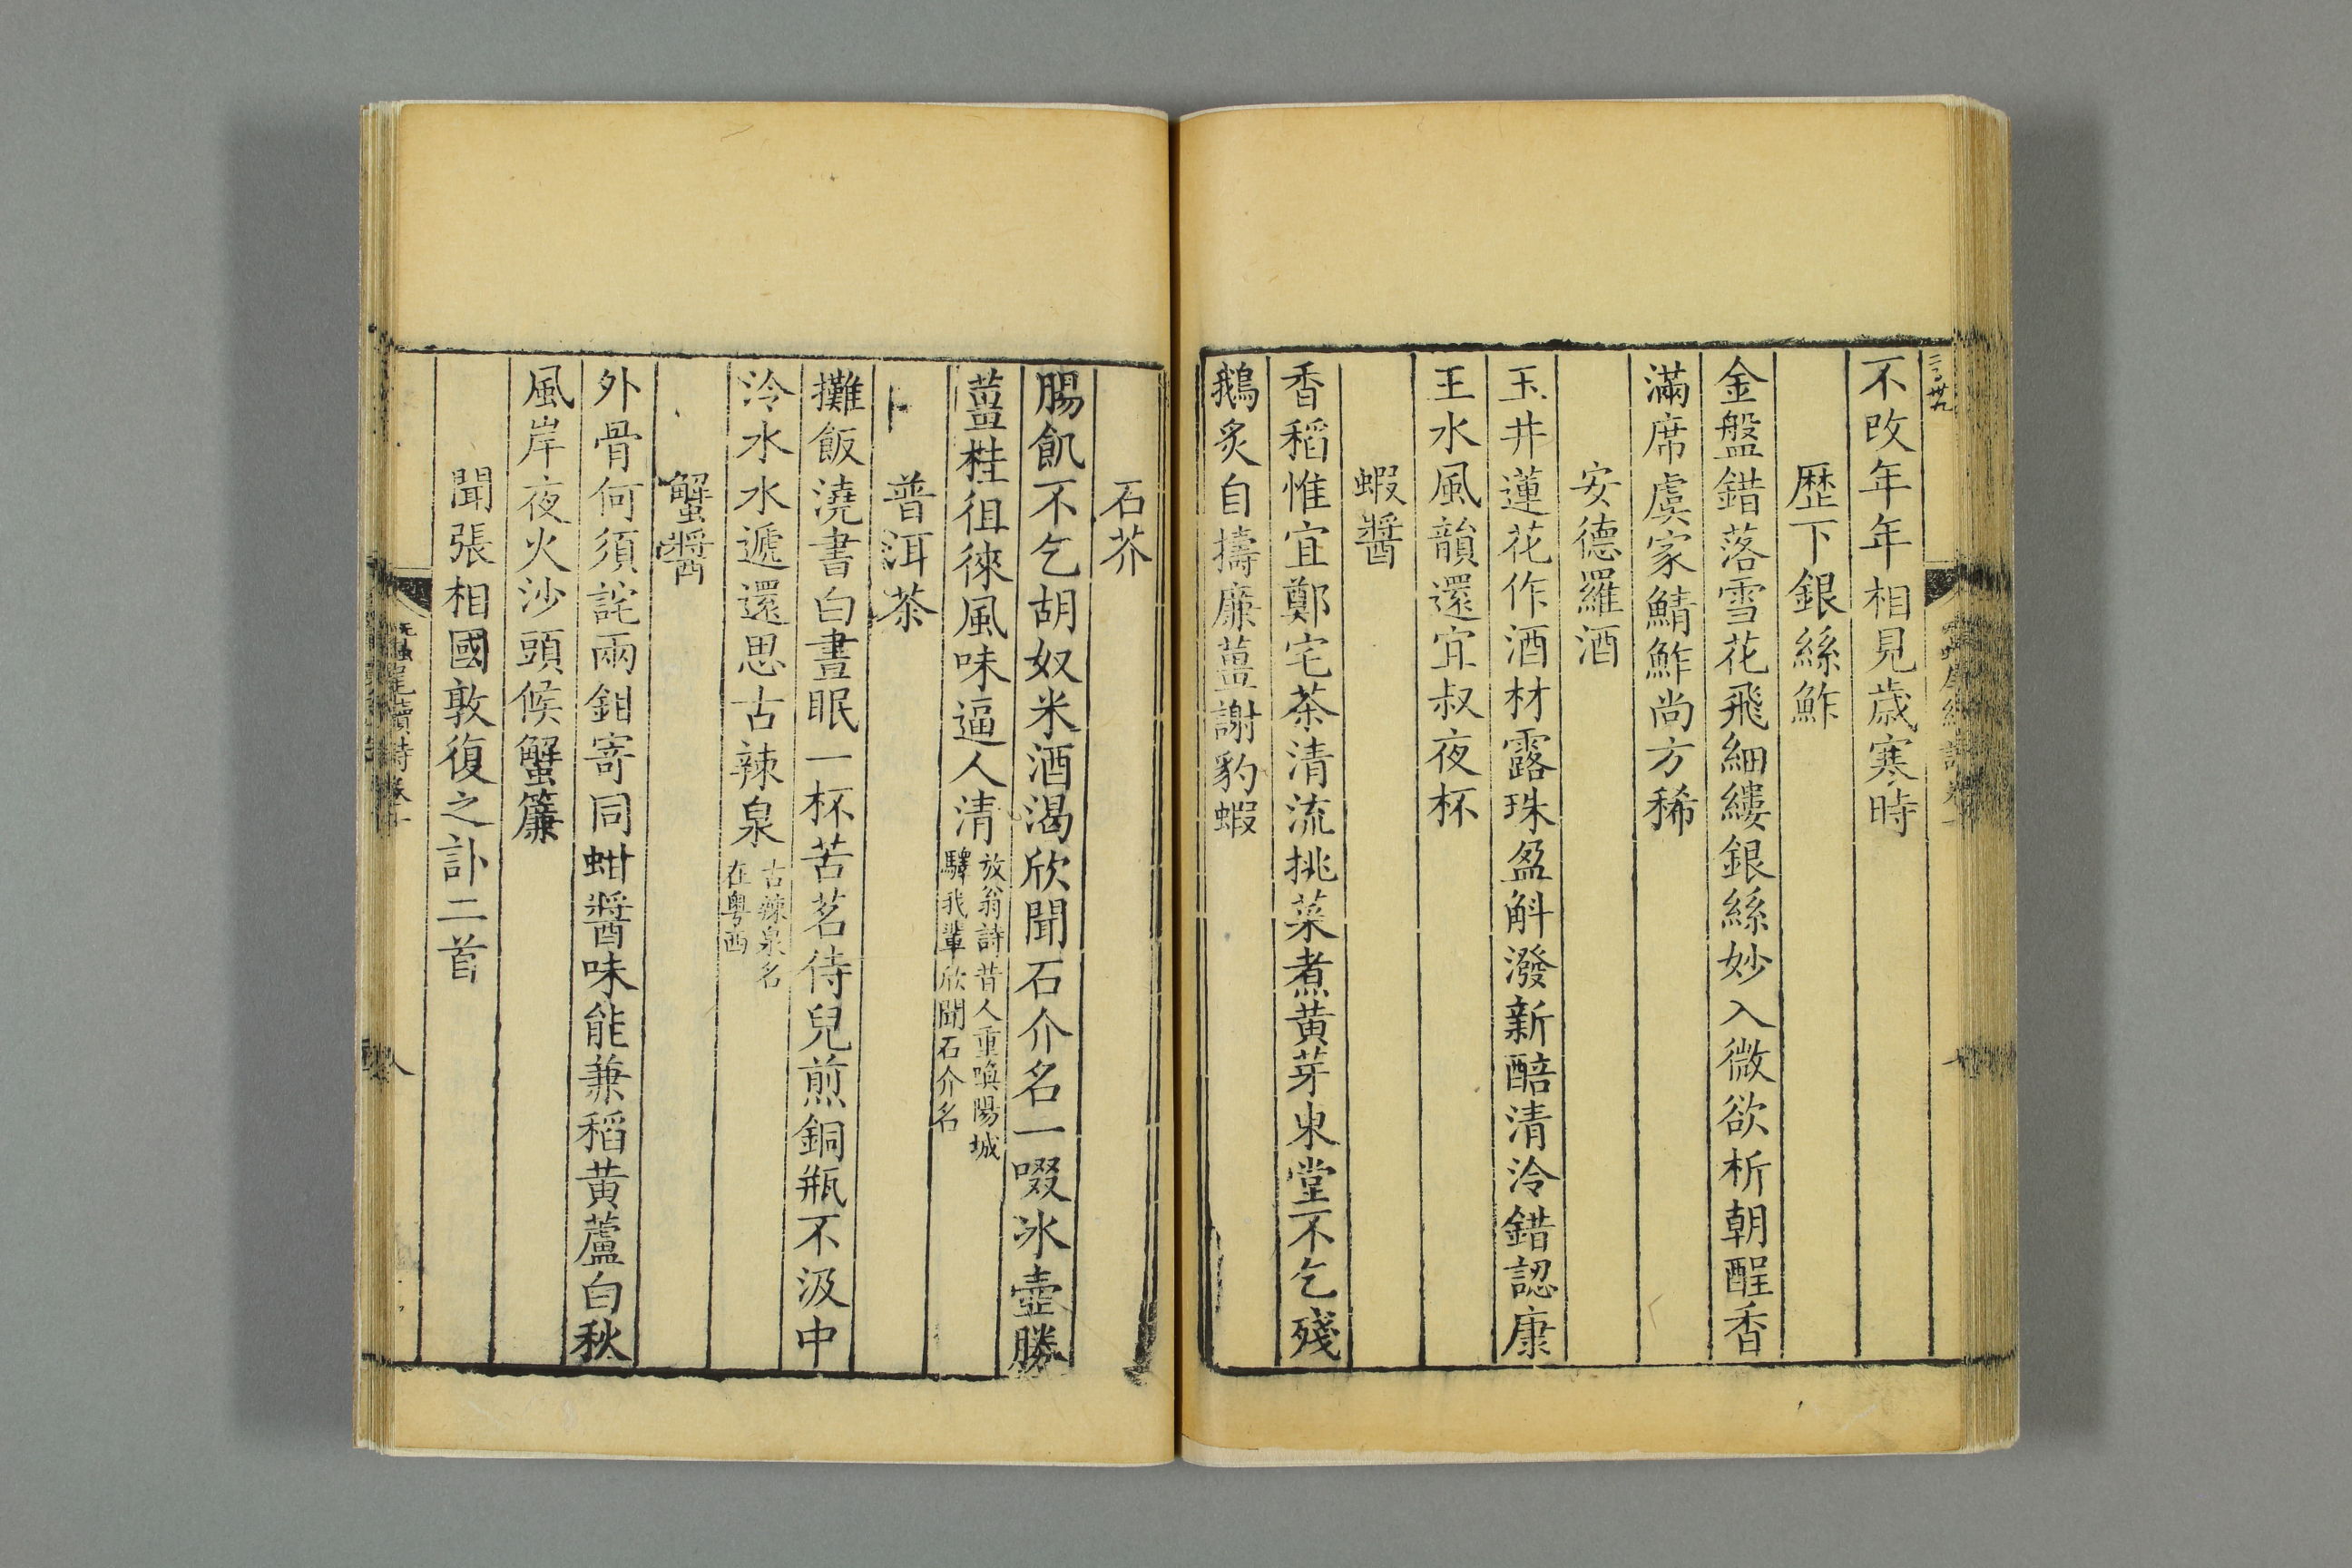 不改年年相見歳寒時
歴下銀絲鮓
金盤錯落雪花飛細縷銀絲妙入微欲析朝酲香
滿席虞家鯖鮓尚方稀
安德羅酒
玉井蓮花作酒材露珠盈斛潑新醅清泠錯認康
王水風韻還宜叔夜杯
蝦醬
香稻惟宜鄭宅茶清流挑菜煮黄芽東堂不乞殘
鵝炙自擣廉薑謝豹蝦
石芥
腸飢不乞胡奴米酒渴欣聞石介名一啜冰壺勝
薑桂徂徠風味逼人清
放翁詩昔人重喚陽城
驛我輩欣聞石介名
普洱茶
攤飯澆書白晝眠一杯苦茗侍兒煎銅瓶不汲中
泠水水遞還思古辣泉
古辣泉名
在粤西
蟹醬
外骨何須詫兩鉗寄同蚶醬味能兼稻黄蘆白秋
風岸夜火沙頭候蟹簾
聞張相國敦復之訃二首
蠶尾續詩卷十
八